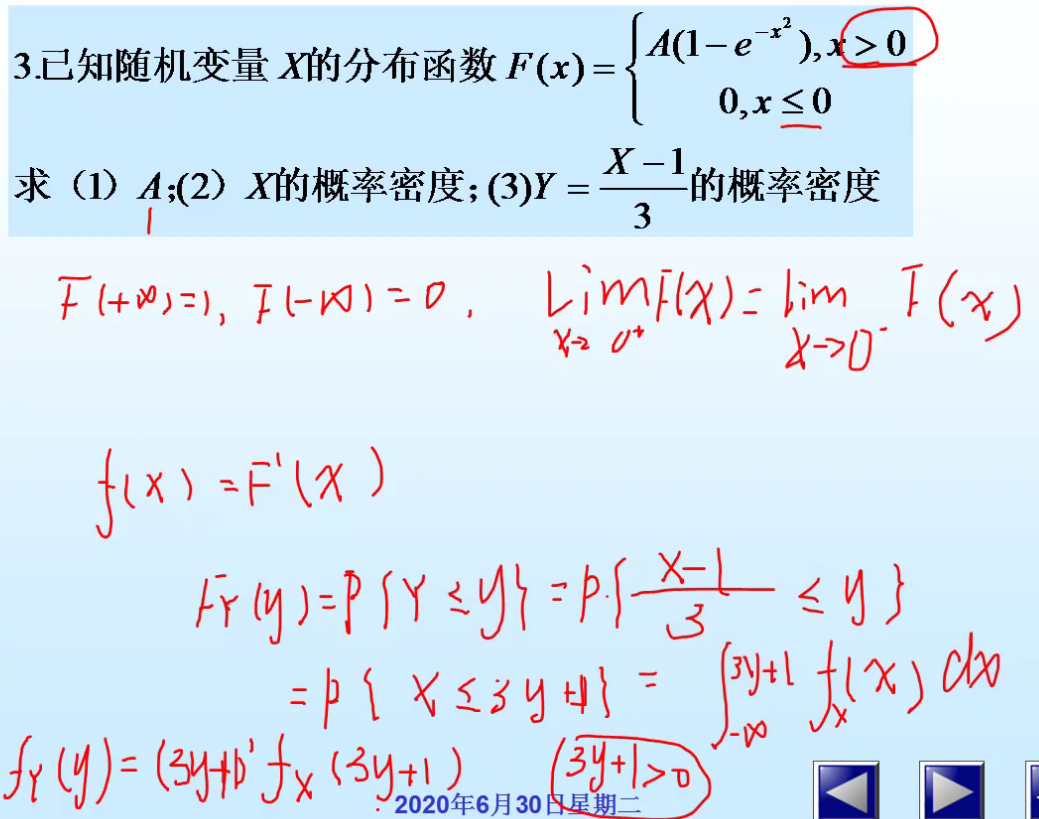 3.已知随机变量 X的分布函数 F(x) = { A(1 − e^{−x²}), x > 0
0, x ≤ 0
求（1）A;(2) X的概率密度; (3)Y = (X − 1)/3 的概率密度
1
F(+∞)=1, F(-∞)=0, Lim_{x→0⁺} F(x) = lim_{x→0⁻} F(x)
f(x) = F'(x)
F_Y(y) = P{Y ≤ y} = P{(X−1)/3 ≤ y}
= P{X ≤ 3y+1} = ∫_{-∞}^{3y+1} f_X(x) dx
f_Y(y) = (3y+1)' f_X(3y+1) (3y+1>0)
2020年6月30日星期二